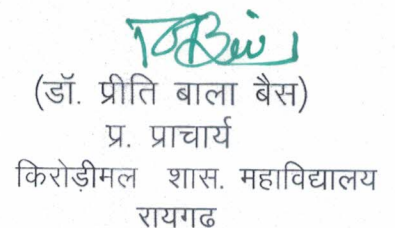 (डॉ. प्रीति बाला बैस)
प्र. प्राचार्य
किरोड़ीमल शास. महाविद्यालय
रायगढ